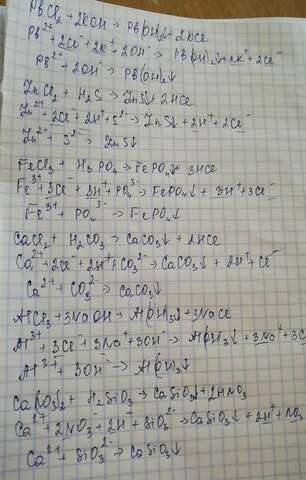 PbCl₂ + 2KOH → Pb(OH)₂↓ + 2KCl
Pb²⁺ + 2Cl⁻ + 2K⁺ + 2OH⁻ → Pb(OH)₂↓ + 2K⁺ + 2Cl⁻
Pb²⁺ + 2OH⁻ → Pb(OH)₂↓
ZnCl₂ + H₂S → ZnS↓ + 2HCl
Zn²⁺ + 2Cl⁻ + 2H⁺ + S²⁻ → ZnS↓ + 2H⁺ + 2Cl⁻
Zn²⁺ + S²⁻ → ZnS↓
FeCl₃ + H₃PO₄ → FePO₄↓ + 3HCl
Fe³⁺ + 3Cl⁻ + 3H⁺ + PO₄³⁻ → FePO₄↓ + 3H⁺ + 3Cl⁻
Fe³⁺ + PO₄³⁻ → FePO₄↓
CaCl₂ + H₂CO₃ → CaCO₃↓ + 2HCl
Ca²⁺ + 2Cl⁻ + 2H⁺ + CO₃²⁻ → CaCO₃↓ + 2H⁺ + Cl⁻
Ca²⁺ + CO₃²⁻ → CaCO₃↓
AlCl₃ + 3NaOH → Al(OH)₃↓ + 3NaCl
Al³⁺ + 3Cl⁻ + 3Na⁺ + 3OH⁻ → Al(OH)₃↓ + 3Na⁺ + 3C
Al³⁺ + 3OH⁻ → Al(OH)₃↓
Ca(NO₃)₂ + H₂SiO₃ → CaSiO₃↓ + 2HNO₃
Ca²⁺ + 2NO₃⁻ + 2H⁺ + SiO₃²⁻ → CaSiO₃↓ + 2H⁺ + NO₃
Ca²⁺ + SiO₃²⁻ → CaSiO₃↓